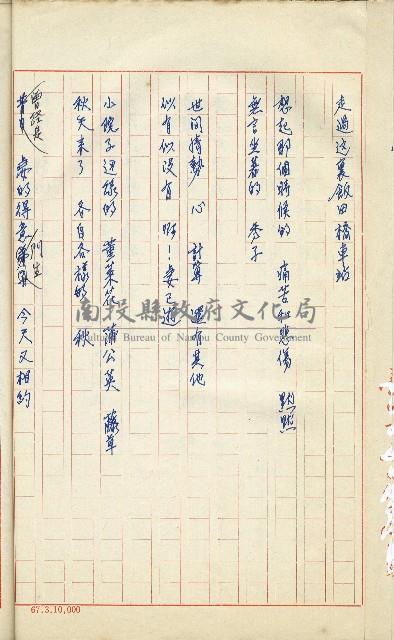 走過這裏飯田橋車站
想起那個時候的 痛苦和悲傷 默默
無言坐著的 秀子
世間情勢 心 計算 還有其他
似有似没有 呀！妻已逝
小院子這樣的 董菜花 蒲公英 藤草
秋天来了 各自各樣的 秋
曾經是
妻的得意 門生 今天又相約
南投縣政府文化局
Cultural Bureau of Nantou County Government
67.3.10,000